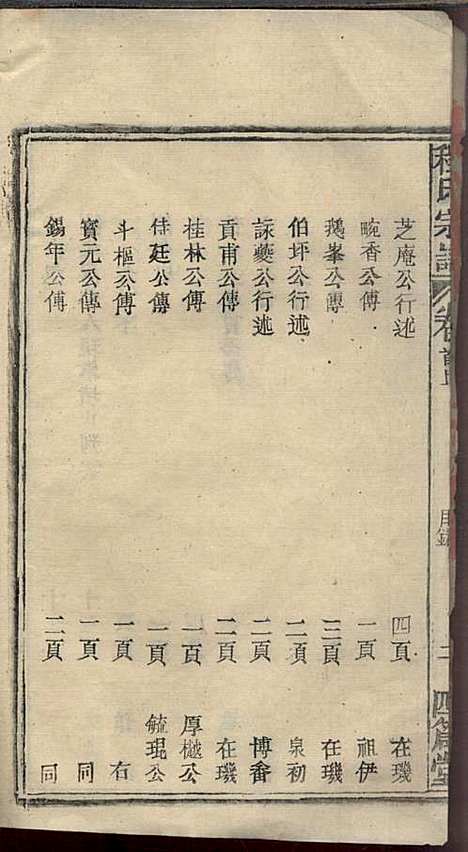 程氏宗譜 卷首
目錄 二
芝庵公行述 四頁 在璣
畹香公傳 一頁 祖伊
鵝峯公傳 三頁 在璣
伯坪公行述 二頁 泉初
詠夔公行述 二頁 博番
貢甫公傳 二頁 在璣
桂林公傳 一頁 厚樾公
侍廷公傳 一頁 毓琨公
斗樞公傳 一頁 右
寶元公傳 一頁 同
錫年公傳 二頁 同